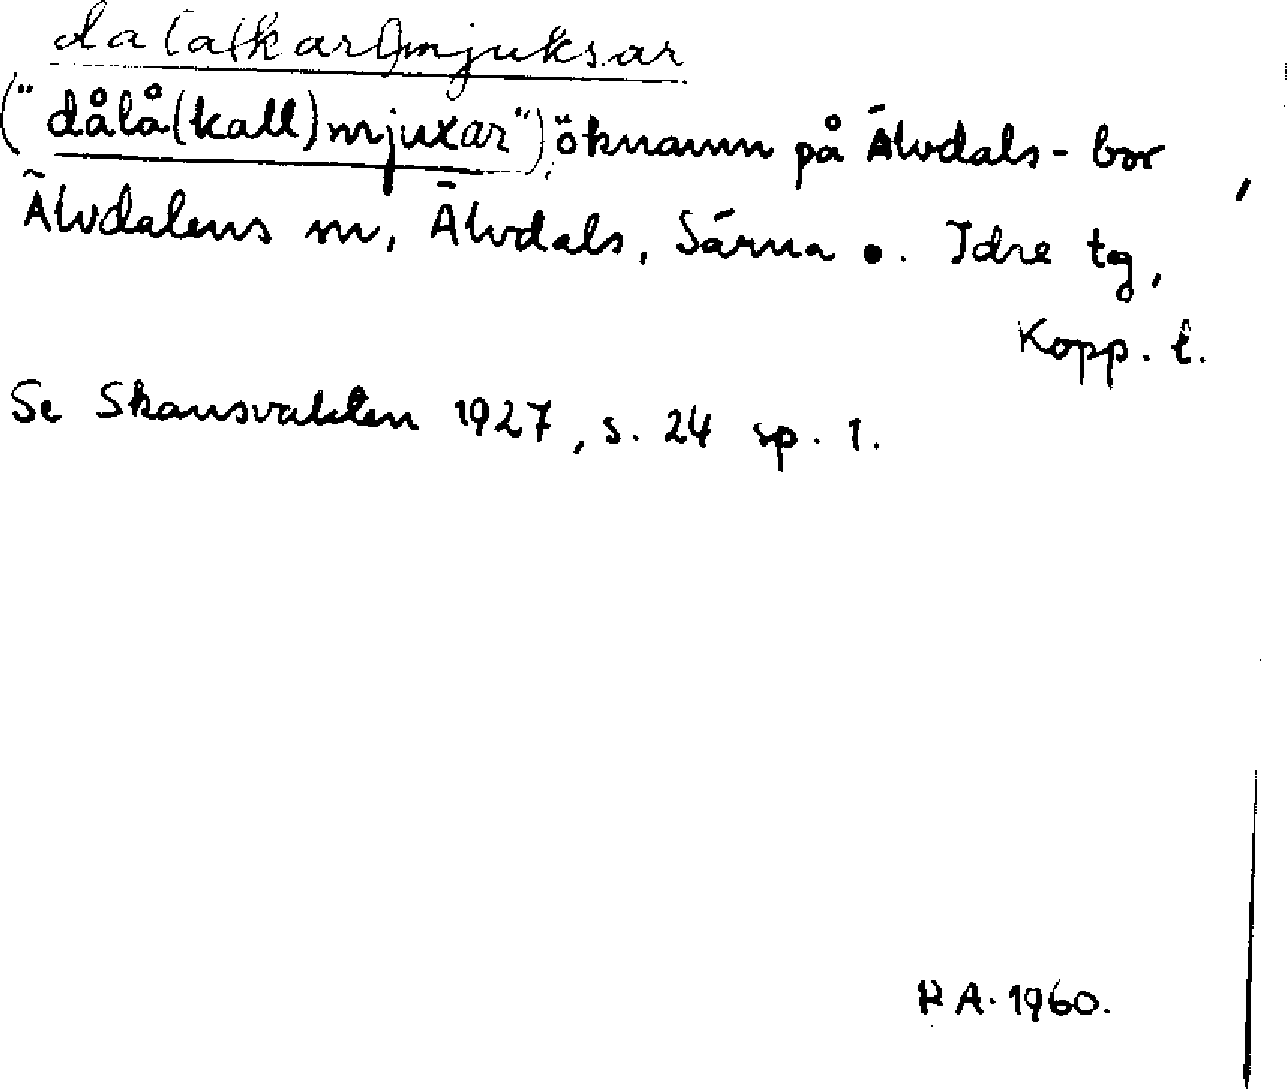 dala(karl)mjuksar
("dålå(kall)mjuxar") öknamn på Älvdals-bor,
Älvdalens sn, Älvdals, Särna o. Idre tg,
Kopp. l.
Se Skansvakten 1927, s. 24 sp. 1.
R A. 1960.